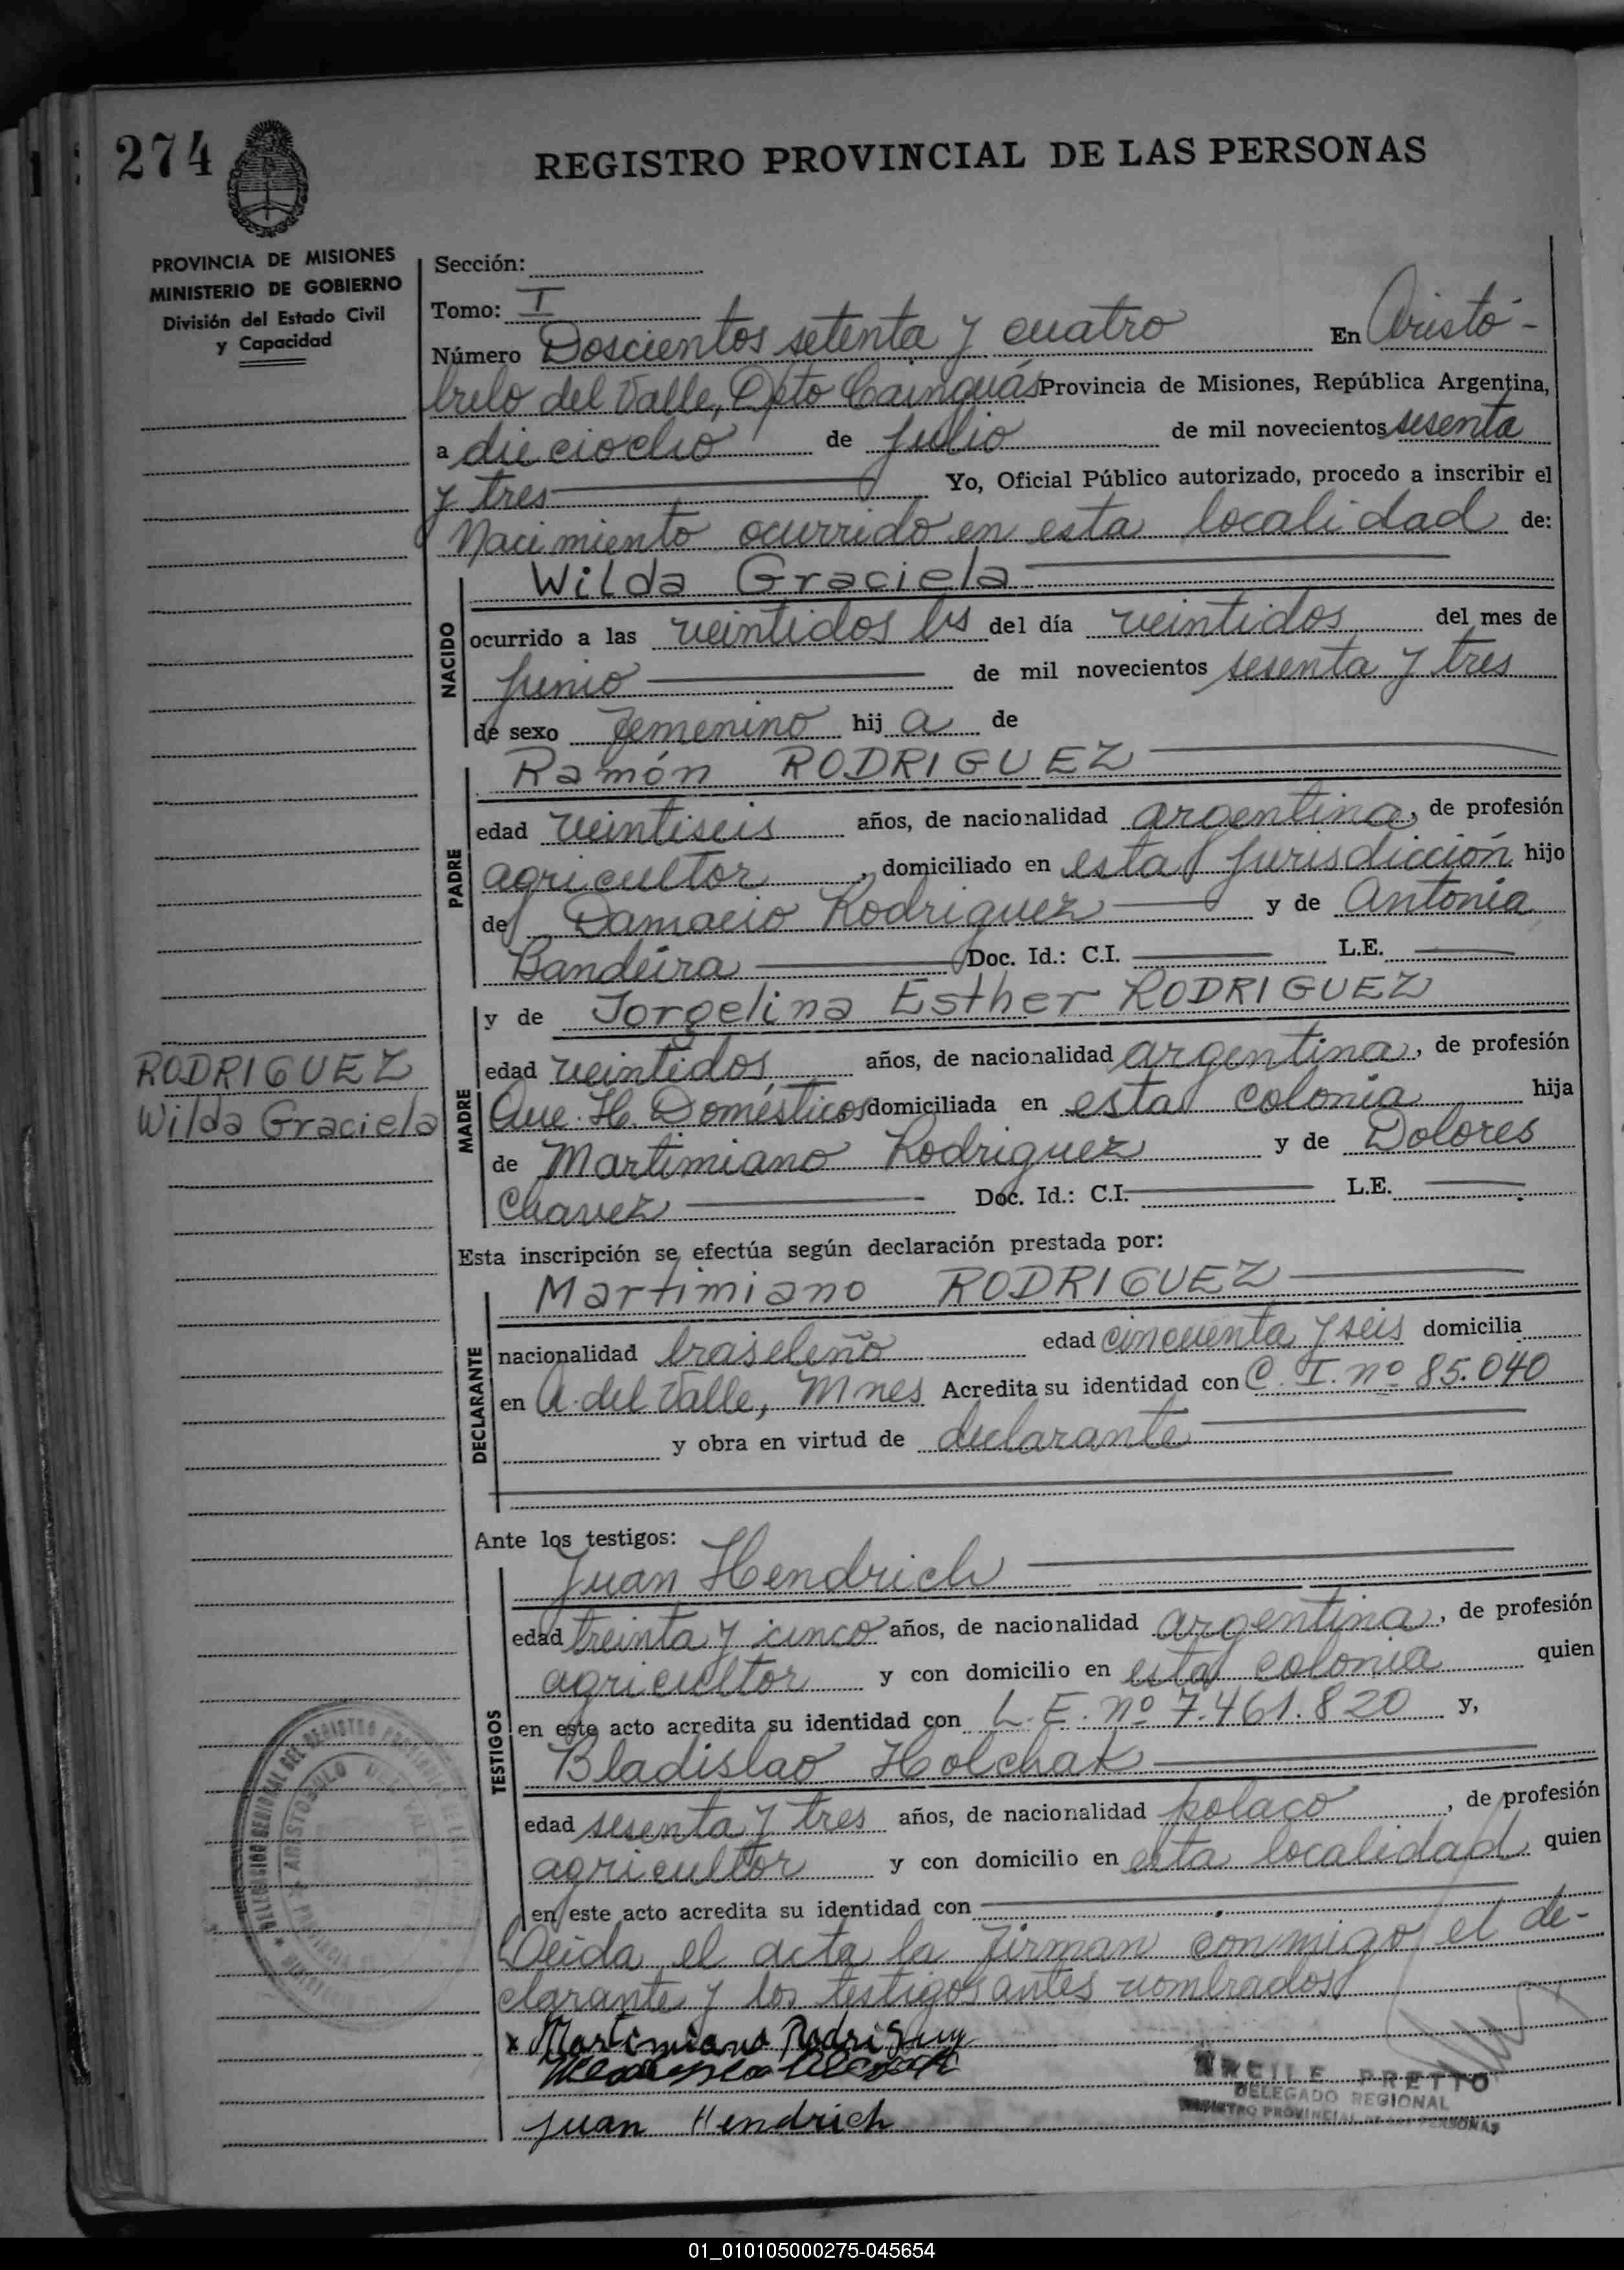 274
REGISTRO PROVINCIAL DE LAS PERSONAS
PROVINCIA DE MISIONES
MINISTERIO DE GOBIERNO
División del Estado Civil
y Capacidad
Sección:
Tomo: I
Número Doscientos setenta y cuatro En Aristó-
bulo del Valle, Dpto Cainguás Provincia de Misiones, República Argentina,
a dieciocho de julio de mil novecientos sesenta
y tres Yo, Oficial Público autorizado, procedo a inscribir el
Nacimiento ocurrido en esta localidad de:
NACIDO
Wilda Graciela
ocurrido a las veintidos hs del día veintidos del mes de
junio de mil novecientos sesenta y tres
de sexo femenino hij a de
PADRE
Ramón RODRIGUEZ
edad veintiseis años, de nacionalidad argentina, de profesión
agricultor, domiciliado en esta jurisdicción hijo
de Damacio Rodriguez y de Antonia
Bandeira Doc. Id.: C.I. L.E.
MADRE
y de Jorgelina Esther RODRIGUEZ
edad veintidos años, de nacionalidad argentina, de profesión
Que. H. Domésticos domiciliada en esta colonia hija
de Martimiano Rodriguez y de Dolores
Chavez Doc. Id.: C.I. L.E.
RODRIGUEZ
Wilda Graciela
Esta inscripción se efectúa según declaración prestada por:
DECLARANTE
Martimiano RODRIGUEZ
nacionalidad braseleño edad cincuenta y seis domicilia
en A. del Valle, Mnes Acredita su identidad con C. I. nº 85.040
y obra en virtud de declarante
Ante los testigos:
TESTIGOS
Juan Hendrich
edad treinta y cinco años, de nacionalidad argentina, de profesión
agricultor y con domicilio en esta colonia quien
en este acto acredita su identidad con L. E. nº 7.461.820 y,
Bladislao Holchak
edad sesenta y tres años, de nacionalidad polaco, de profesión
agricultor y con domicilio en esta localidad quien
en este acto acredita su identidad con
Leida el acta la firman conmigo el de-
clarante y los testigos antes nombrados
x Martimiano Rodriguez
Juan Hendrich
PRETTO
DELEGADO REGIONAL
REGISTRO PROVINCIAL DE LAS PERSONAS
01_010105000275-045654